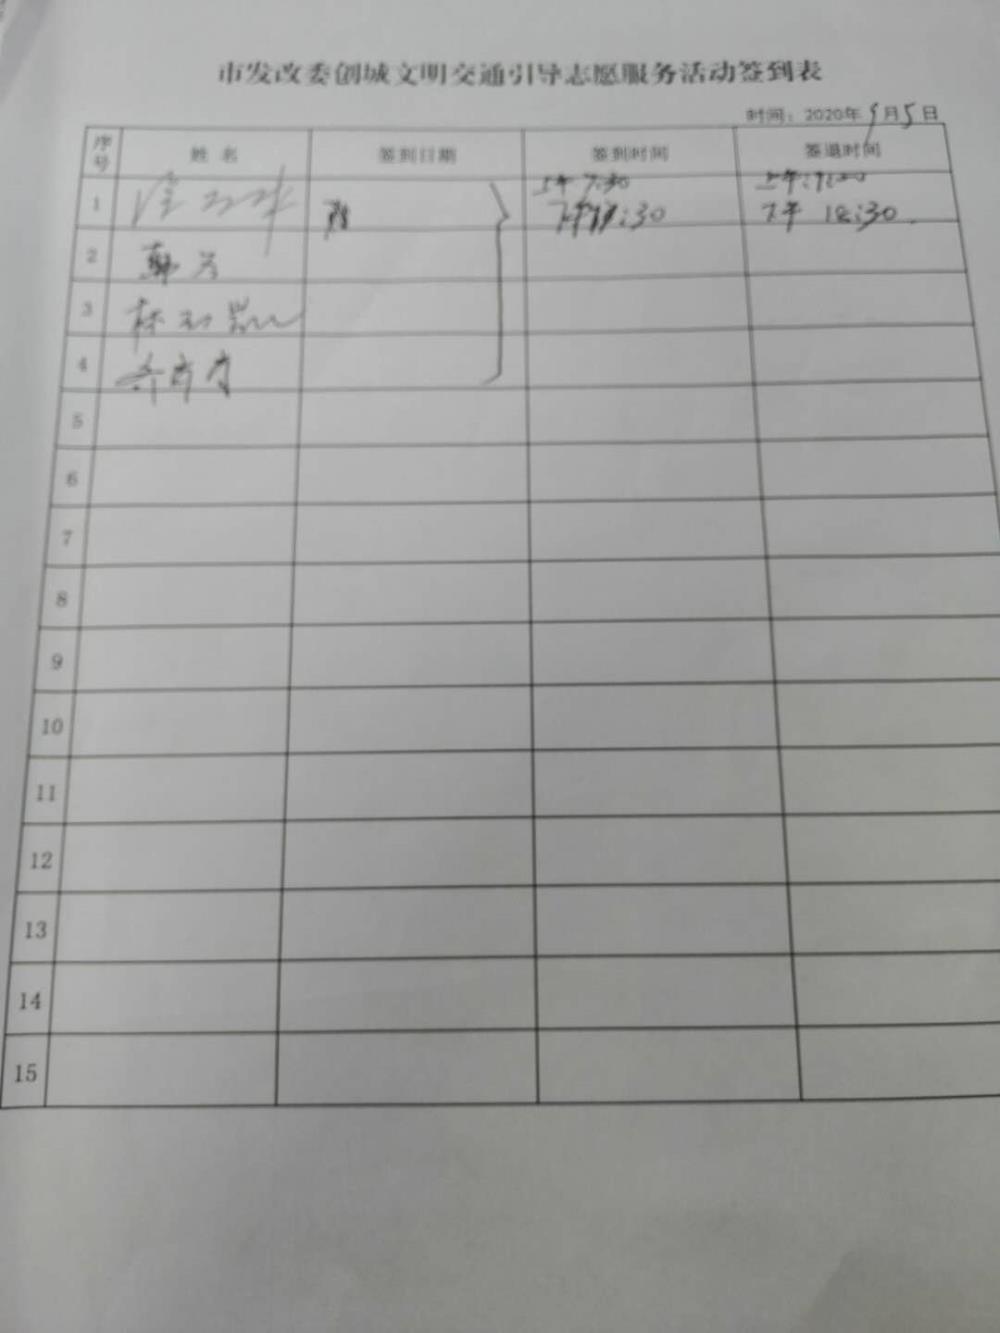 市发改委创城文明交通引导志愿服务活动签到表
时间：2020年9月5日
序号 姓名 签到日期 签到时间 签退时间
1 上午7:30 上午:9:00
下午17:30 下午 18:30
2 韩
3 林
4
5
6
7
8
9
10
11
12
13
14
15